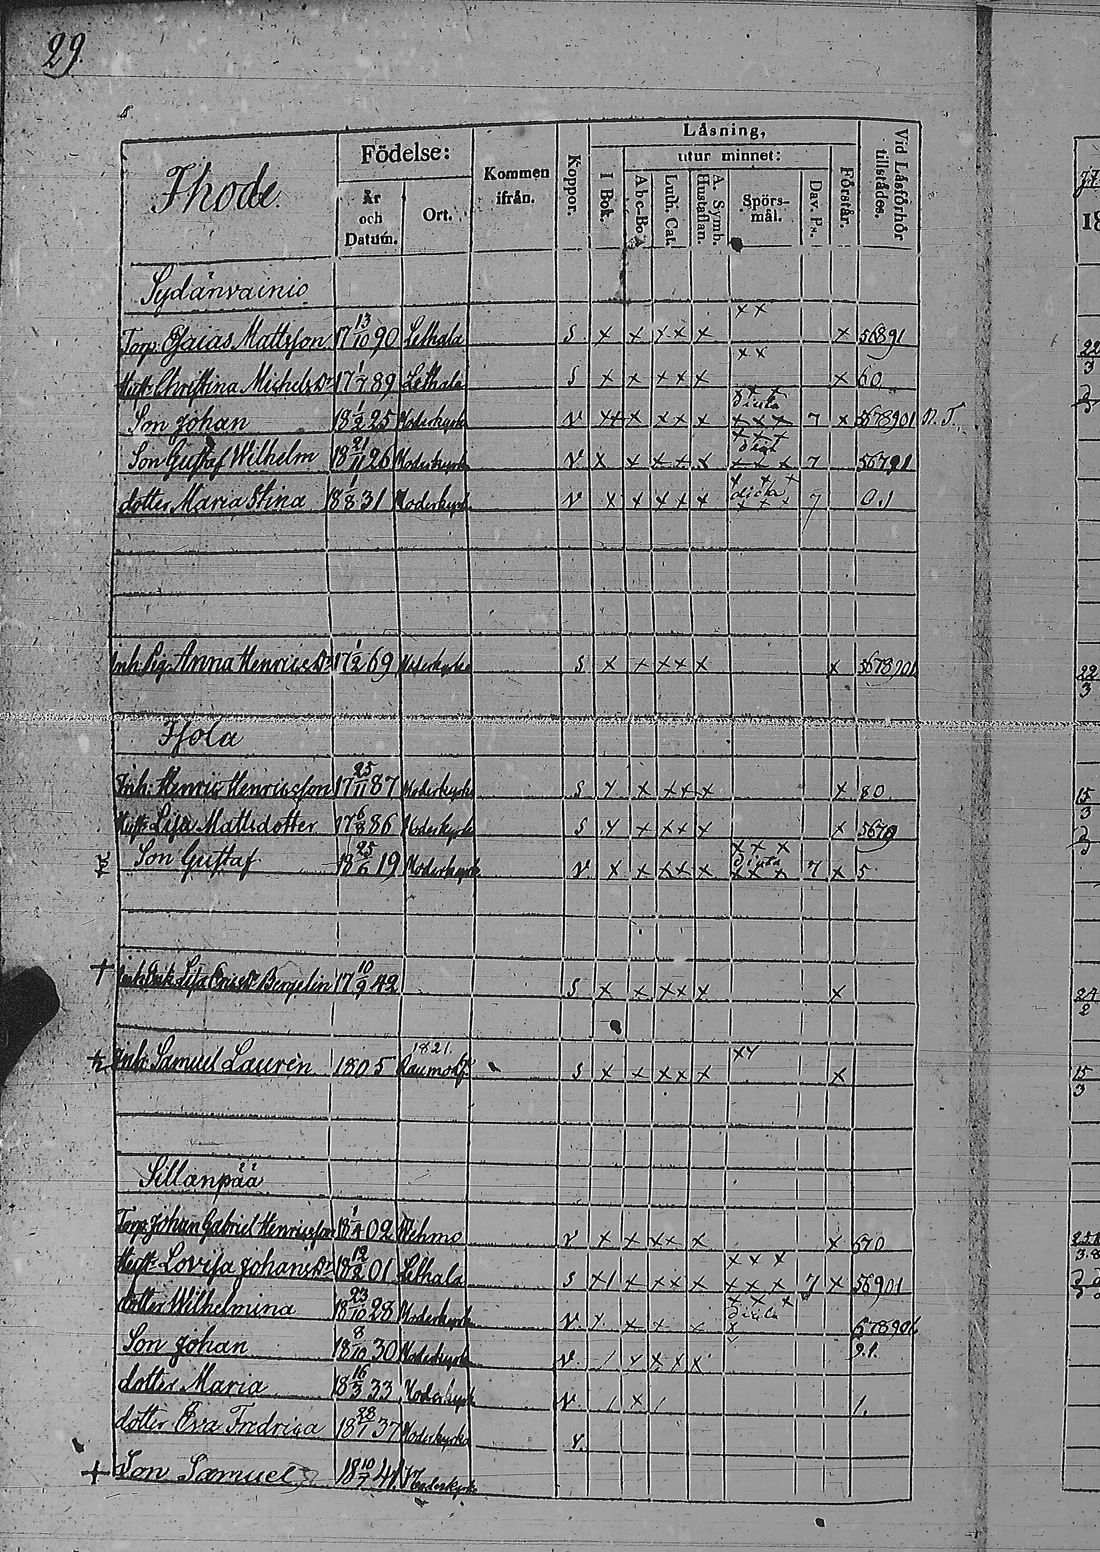 29.
Ihode.
Födelse:
År och Datum.
Ort.
Kommen ifrån.
Koppor.
Läsning,
I Bok.
utur minnet:
Abc-Bo
Luth. Cat.
A. Symb. Hustaflan.
Spörsmål.
Dav. Ps.
Förstår.
Vid Läsförhör tillstädes.
Sydänvainio
x x
Torp. Esaias Mattsson 17 13/10 90 Lethala S x x x x x x 56891
x x
Hust. Christina Michelsdr 17 1/7 89 Lethala S x x x x x x 60
Son Johan 18 1/2 25 Moderkyrk V x x x x x x x x x 7 x 5678901 N. T.
Son Gustaf Wilhelm 18 21/11 26 Moderkyrk V x x x x x x x x 7 x 56791
dotter Maria Stina 18 1/8 31 Moderkyrk V x x x x x x x x 7 0.1
Inh. Pig. Anna Henricsdr 17 1/2 69 Moderkyrka S x x x x x x 5678901
Isola
Inh: Henric Henricsson 17 25/11 87 Moderkyrka S x x x x x x 80
Hust. Lisa Mattsdotter 17 6/8 86 Moderkyrk S x x x x x x 5679
Son Gustaf 18 25/6 19 Moderkyrk V x x x x x x x x 7 x 5
+ Inh. Enk. Lisa Ericsdr Bergelin 17 10/9 42 S x x x x x x
Inh. Samuel Lauren 1805 1821. Raumo S x x x x x x x x
Sillanpää
Torp. Johan Gabriel Henricsson 18 1/4 02 Wehmo V x x x x x x 570
Hust. Lovisa Johansdr 18 12/2 01 Lethala S x 1 x x x x x x x 7 x 56901
dotter Wilhelmina 18 23/10 28 Moderkyrk V x x x x 578901
Son Johan 18 8/10 30 Moderkyrk V / x x x x 9.1.
dotter Maria 18 16/3 33 Moderkyrk V / x / 1.
dotter Eva Fredrica 18 28/1 37 Moderkyrka V.
+ Son Samuel 18 10/7 41 Moderkyrk